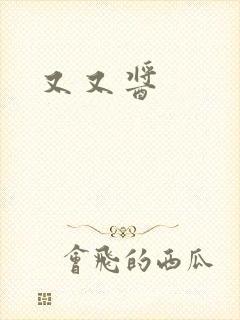 又又醬
會飛的西瓜